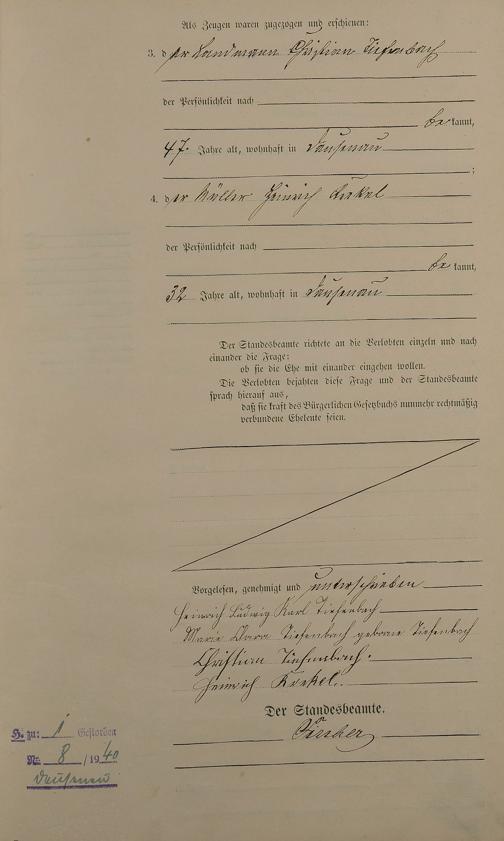 Als Zeugen waren zugezogen und erschienen:
3. der Landmann Christian Tiefenbach
der Persönlichkeit nach
bekannt,
47 Jahre alt, wohnhaft in Dausenau
;
4. der Müller Heinrich Krekel
der Persönlichkeit nach
bekannt,
32 Jahre alt, wohnhaft in Dausenau
Der Standesbeamte richtete an die Verlobten einzeln und nach
einander die Frage:
ob sie die Ehe mit einander eingehen wollen.
Die Verlobten bejahten diese Frage und der Standesbeamte
sprach hierauf aus,
daß sie kraft des Bürgerlichen Gesetzbuchs nunmehr rechtmäßig
verbundene Eheleute seien.
Vorgelesen, genehmigt und unterschrieben
Heinrich Ludwig Karl Tiefenbach
Marie Clara Tiefenbach geborene Tiefenbach
Christian Tiefenbach.
Heinrich Krekel.
Der Standesbeamte.
H. zu: 1 Gestorben
Nr. 8 /1940
Dausenau